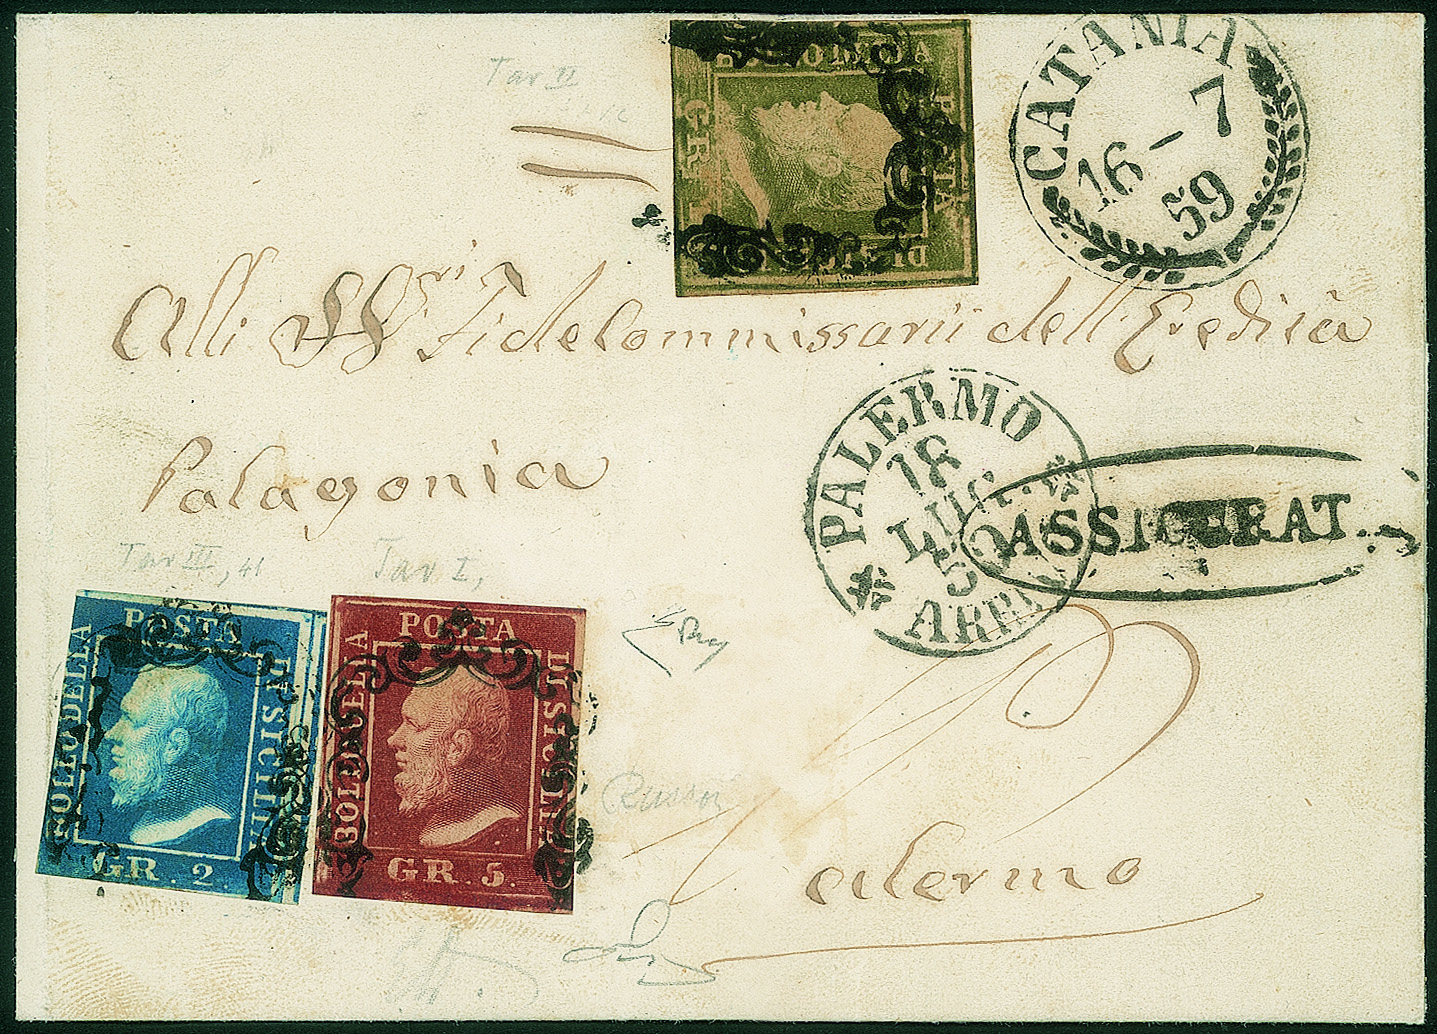 Tav II
POSTA
DI SICILIA
GR. 1
CATANIA
16 - 7
59
Alli SSri Fidecommissarii dell'Eredità
Palagonia
PALERMO
18
LUG.
59
ARRI
ASSICURAT
Tav III, 41
Tav I,
BOLLO DELLA
POSTA
DI SICILIA
GR. 2.
BOLLO DELLA
POSTA
DI SICILIA
GR. 5.
Palermo